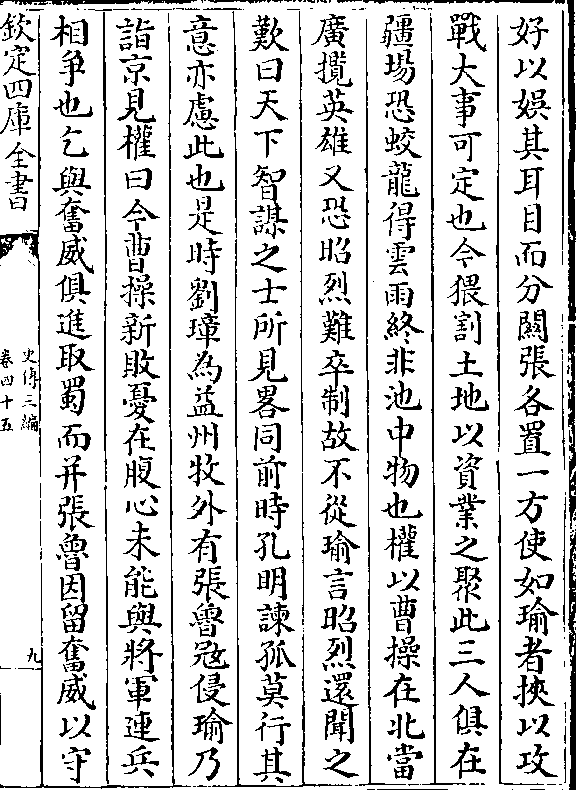 好以娯其耳目而分闗張各置一方使如瑜者挾以攻
戰大事可定也今猥割土地以資業之聚此三人俱在
疆場恐蛟龍得雲雨終非池中物也權以曹操在北當
廣攬英雄又恐昭烈難卒制故不從瑜言昭烈還聞之
歎曰天下智謀之士所見畧同前時孔明諫孤莫行其
意亦慮此也是時劉璋為益州牧外有張魯冦侵瑜乃
詣京見權曰今曹操新敗憂在腹心未能與將軍連兵
相爭也乞與奮威俱進取蜀而并張魯因留奮威以守
欽定四庫全書
史傳三編
卷四十五
九